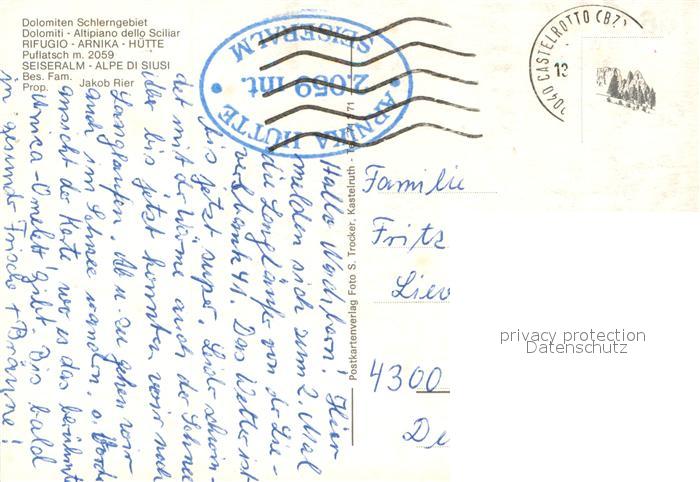 Dolomiten Schlerngebiet
Dolomiti - Altipiano dello Sciliar
RIFUGIO - ARNIKA - HÜTTE
Puflatsch m. 2059
SEISERALM - ALPE DI SIUSI
Bes. Fam.
Prop. Jakob Rier
ARNIKA HÜTTE
2.059 mt.
SEISERALM
39040 CASTELROTTO (BZ)
Postkartenverlag Foto S. Trocker, Kastelruth -
Hallo Nachbarn! Hier
melden sich zum 2. Mal
die Langläufer von der
41. Das Wetter ist
bis jetzt super. Leider schwin-
det mit der Wärme auch der Schnee
aber bis jetzt konnten wir noch
Langlaufen. Ab u. zu gehen wir
auch im Schnee wandern. s. Vorder
ansicht der Karte, wo es das berühmte
Arnica-Omelett gibt. Bis bald
in gesunder Frische + Bräune!
Familie
Fritz
4300
privacy protection
Datenschutz